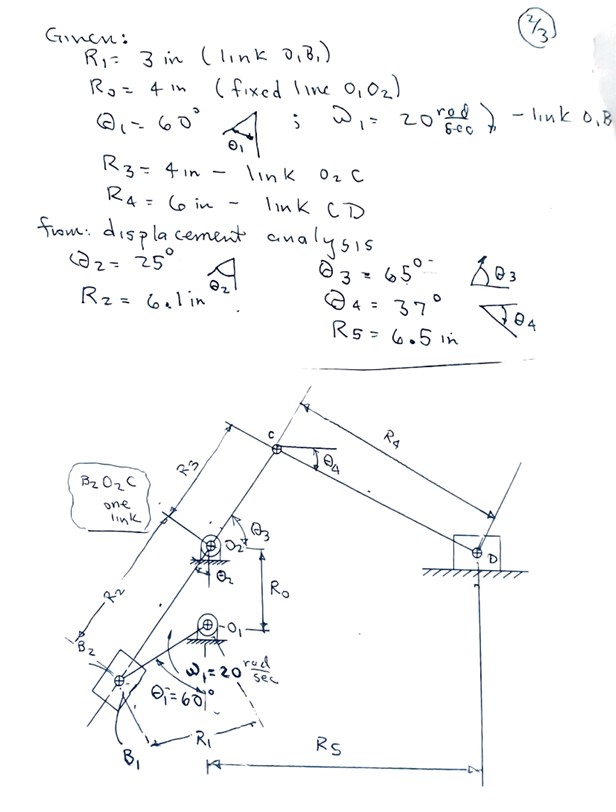 2/3
Given:
R₁= 3 in (link O₁B₁)
R₀= 4 in (fixed line O₁O₂)
θ₁= 60° θ₁ ; ω₁= 20 rad/sec ) - link O₁B
R₃= 4 in - link O₂C
R₄= 6 in - link CD
from: displacement analysis
θ₂= 25° θ₂
R₂= 6.1 in
θ₃= 65° θ₃
θ₄= 37° θ₄
R₅= 6.5 in
C
R₄
R₃
θ₄
B₂O₂C
one
link
θ₃
O₂
D
θ₂
R₀
R₂
O₁
B₂
ω₁=20 rad/sec
θ₁=60°
R₁
B₁
R₅